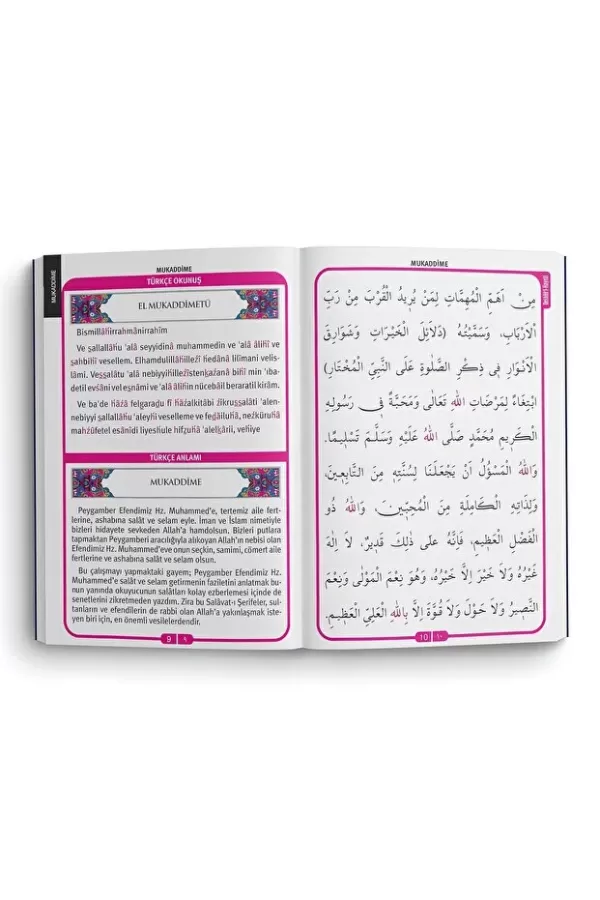 MUKADDİME
MUKADDİME
TÜRKÇE OKUNUŞ
EL MUKADDİMETÜ
Bismillâhirrahmânirrahîm
Ve şallallâhu ‘alâ seyyidinâ muhammedin ve ‘alâ âlihî ve
şahbihî vesellem. Elhamdulillâhillezî hedânâ lilîmani velis-
lâmi. Vessalâtu ‘alâ nebiyyihillezîstenkazanâ bihî min ‘iba-
detil evsâni vel eşnâmi ve ‘alâ âlihîn nücebâil beraratil kirâm.
Ve ba'de hâzâ felgaraḍu fî hâzalkitâbi zikrussalâti ‘alen-
nebiyyi sallallâhu ‘aleyhi veselleme ve feḍailuhâ, nezkuruhâ
mahzûfetel esânîdi liyeshule hifzuhâ ‘alelkârii, vehiye
TÜRKÇE ANLAMI
MUKADDİME
Peygamber Efendimiz Hz. Muhammed'e, tertemiz aile fert-
lerine, ashabına salât ve selam eyle. İman ve İslam nimetiyle
bizleri hidayete sevkeden Allah'a hamdolsun. Bizleri putlara
tapmaktan Peygamberi aracılığıyla alıkoyan Allah'ın nebisi olan
Efendimiz Hz. Muhammed'eve onun seçkin, samimi, cömert aile
fertlerine ve ashabına salât ve selam olsun.
Bu çalışmayı yapmaktaki gayem; Peygamber Efendimiz Hz.
Muhammed'e salât ve selam getirmenin faziletini anlatmak bu-
nun yanında okuyucunun salâtları kolay ezberlemesi içinde de
senetlerini zikretmeden yazdım. Zira bu Salâvat-ı Şerifeler, sul-
tanların ve efendilerin de rabbi olan Allah'a yakınlaşmak iste-
yen biri için, en önemli vesilelerdendir.
9 ٩
MUKADDİME
مِنْ اَهَمِّ الْمُهِمَّاتِ لِمَنْ يُرِيدُ الْقُرْبَ مِنْ رَبِّ
الْاَرْبَابِ، وَسَمَّيْتُهُ (دَلَائِلَ الْخَيْرَاتِ وَشَوَارِقَ
الْاَنْوَارِ فِى ذِكْرِ الصَّلٰوةِ عَلَى النَّبِيِّ الْمُخْتَارِ)
ابْتِغَاءً لِمَرْضَاتِ اللّٰهِ تَعَالٰى وَمَحَبَّةً فِى رَسُولِهِ
الْكَرِيمِ مُحَمَّدٍ صَلَّى اللّٰهُ عَلَيْهِ وَسَلَّمَ تَسْلِيمًا.
وَاللّٰهُ الْمَسْؤُلُ اَنْ يَجْعَلَنَا لِسُنَّتِهِ مِنَ التَّابِعِينَ،
وَلِذَاتِهِ الْكَامِلَةِ مِنَ الْمُحِبِّينَ، وَاللّٰهُ ذُو
الْفَضْلِ الْعَظِيمِ، فَاِنَّهُ عَلٰى ذٰلِكَ قَدِيرٌ، لَا اِلٰهَ
غَيْرُهُ وَلَا خَيْرَ اِلَّا خَيْرُهُ، وَهُوَ نِعْمَ الْمَوْلٰى وَنِعْمَ
النَّصِيرُ وَلَا حَوْلَ وَلَا قُوَّةَ اِلَّا بِاللّٰهِ الْعَلِيِّ الْعَظِيمِ.
10 ١٠